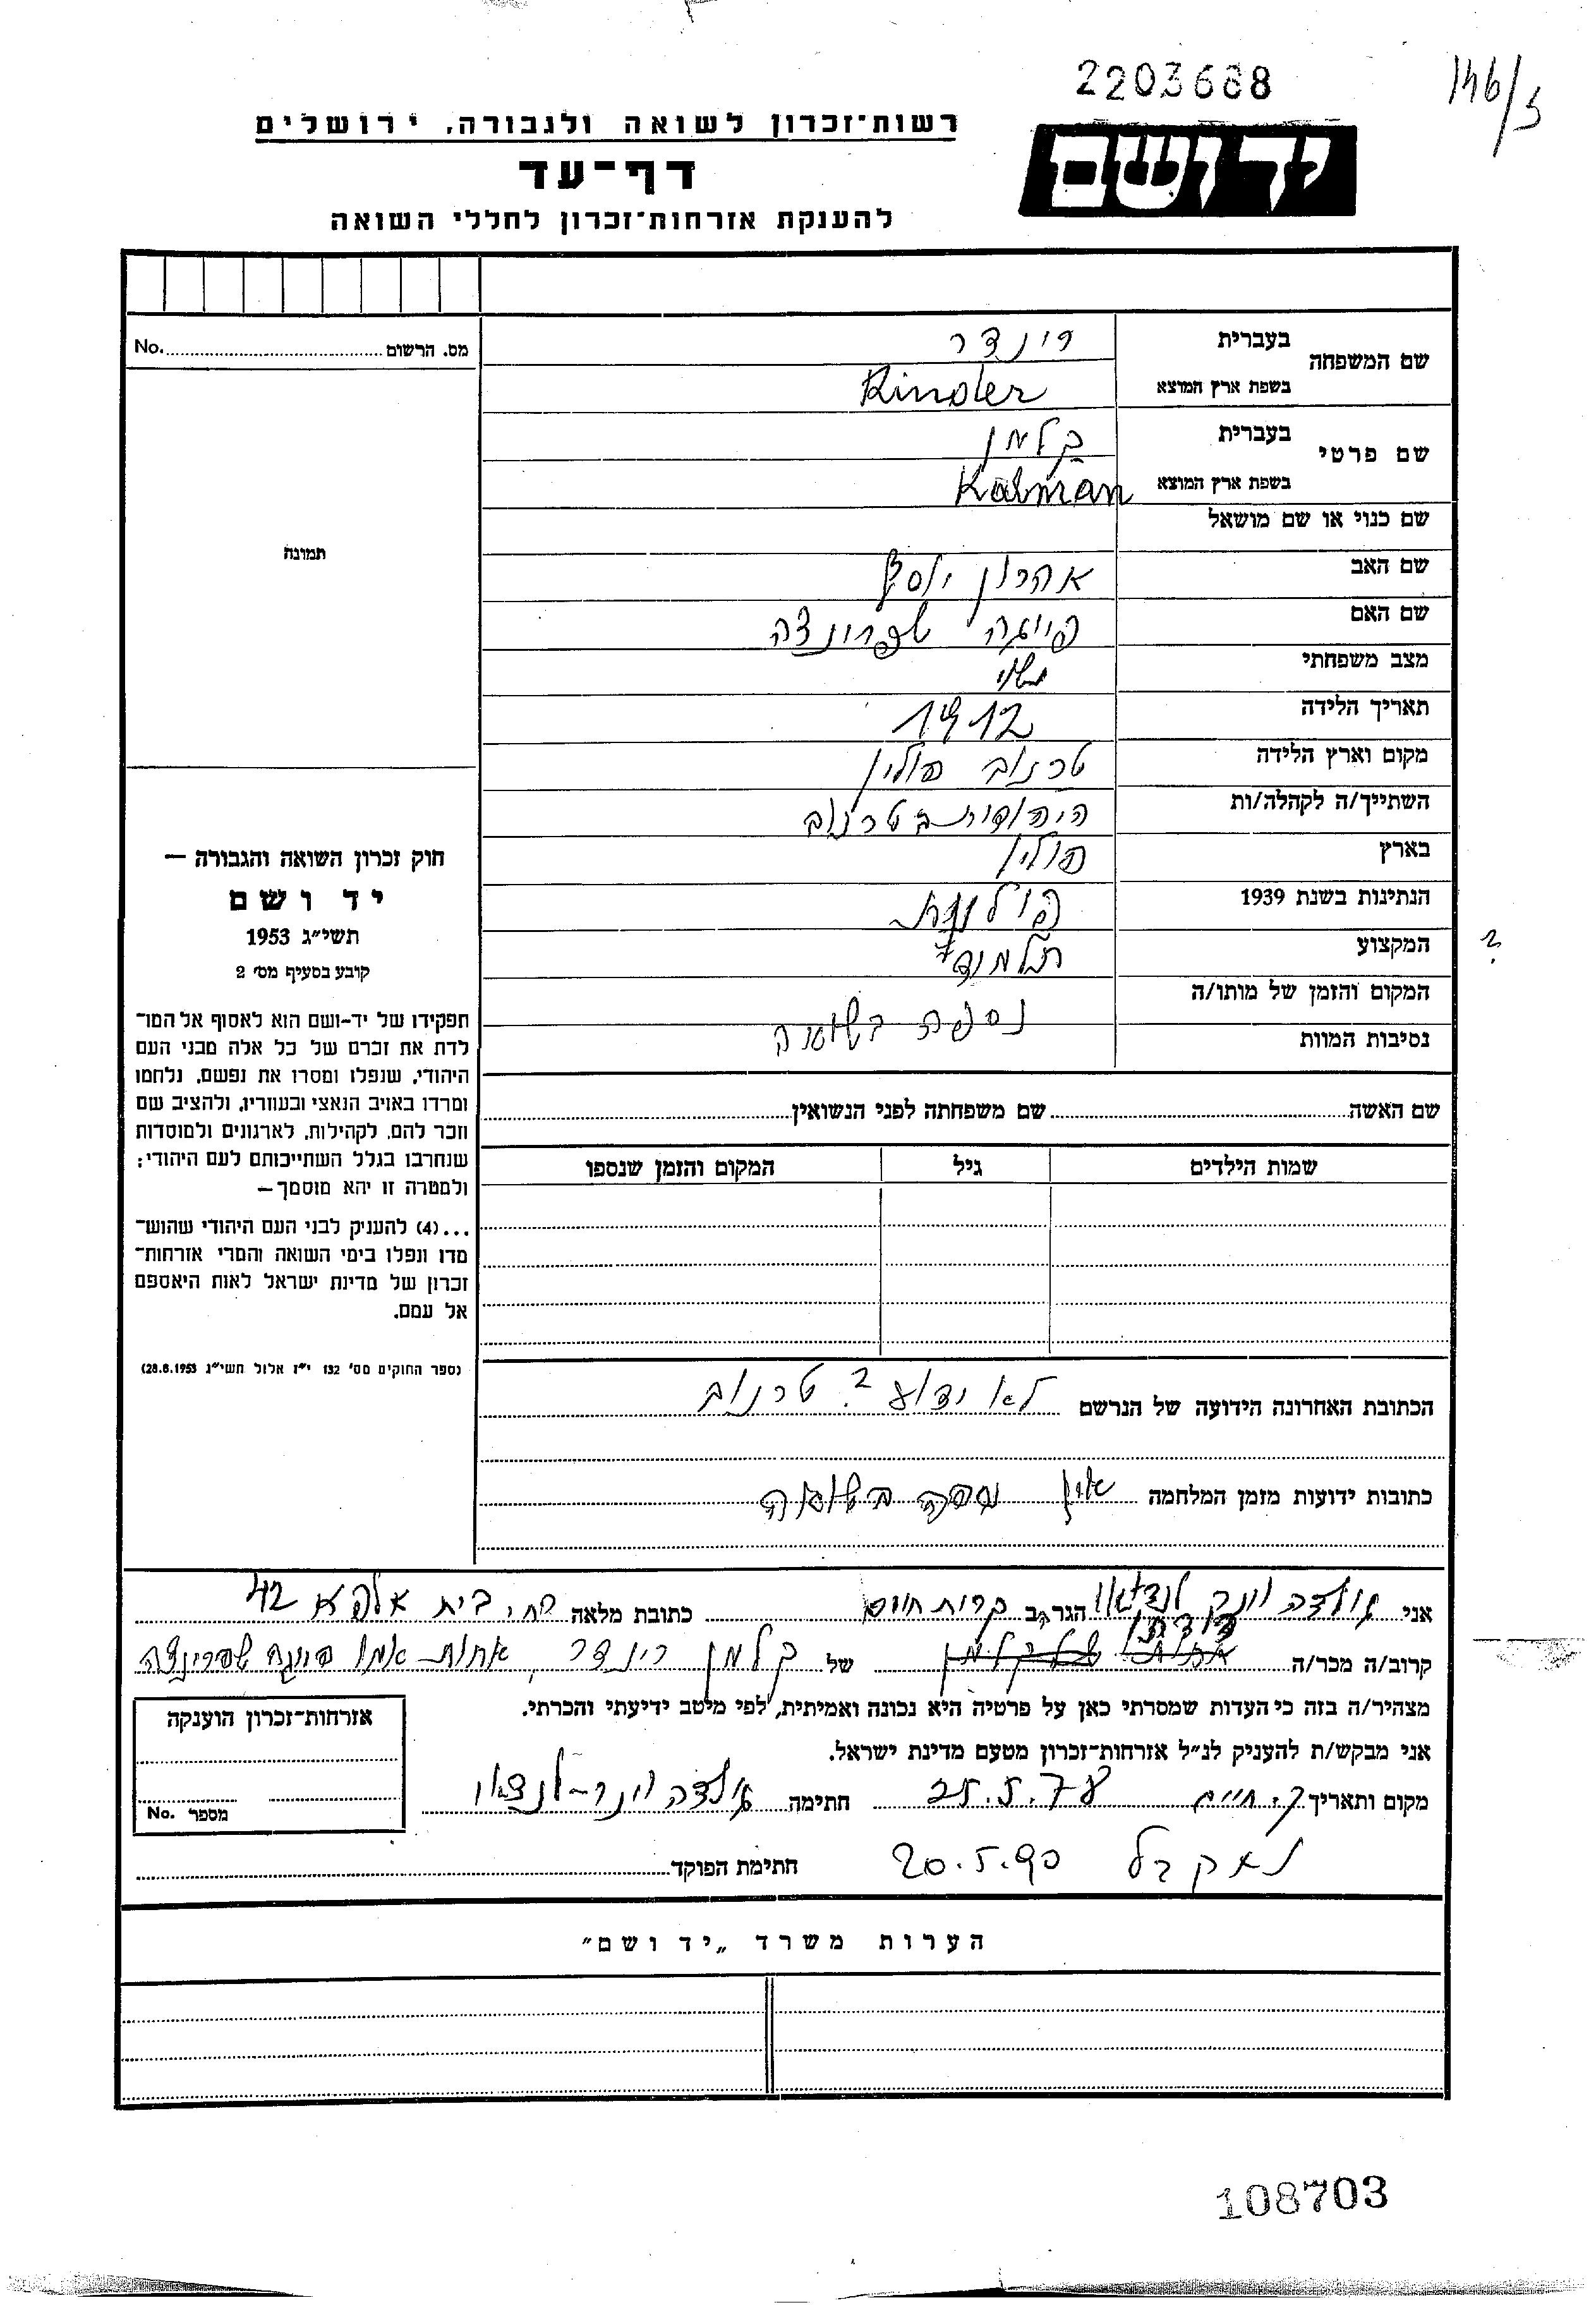 2203688
146/5
רשות־זכרון לשואה ולגבורה, ירושלים
יד ושם
דף־עד
להענקת אזרחות־זכרון לחללי השואה
מס. הרשום No.
שם המשפחה
בעברית רינדר
בשפת ארץ המוצא Rinder
שם פרטי
בעברית קלמן
בשפת ארץ המוצא Kalman
שם כנוי או שם מושאל
שם האב אהרון יוסף
שם האם פייגה שפרינצה
מצב משפחתי נשוי
תאריך הלידה 1912
מקום וארץ הלידה טרנוב פולין
השתייך/ה לקהלה/ות היהודית בטרנוב
בארץ פולין
הנתינות בשנת 1939 פולנית
המקצוע ?
המקום והזמן של מותו/ה
נסיבות המוות נספה בשואה
תמונה
חוק זכרון השואה והגבורה —
יד ושם
תשי״ג 1953
קובע בסעיף מס׳ 2
תפקידו של יד-ושם הוא לאסוף אל המו־
לדת את זכרם של כל אלה מבני העם
היהודי, שנפלו ומסרו את נפשם, נלחמו
ומרדו באויב הנאצי ובעוזריו, ולהציב שם
וזכר להם, לקהילות, לארגונים ולמוסדות
שנחרבו בגלל השתייכותם לעם היהודי;
ולמטרה זו יהא מוסמך—
...(4) להעניק לבני העם היהודי שהוש־
מדו ונפלו בימי השואה והמרי אזרחות־
זכרון של מדינת ישראל לאות היאספם
אל עמם.
(ספר החוקים מס׳ 132 י״ז אלול תשי״ג 28.8.1953)
שם האשה שם משפחתה לפני הנשואין
שמות הילדים גיל המקום והזמן שנספו
הכתובת האחרונה הידועה של הנרשם לא ידוע ? טרנוב
כתובות ידועות מזמן המלחמה אין נספה בשואה
אני לנדאו הגר/ה ב קרית חיים כתובת מלאה רח׳ בית אלפא 42
דודתו
קרוב/ה מכר/ה של קלמן רינדר, אחות אמו פייגה שפרינצה
מצהיר/ה בזה כי העדות שמסרתי כאן על פרטיה היא נכונה ואמיתית, לפי מיטב ידיעתי והכרתי.
אני מבקש/ת להעניק לנ״ל אזרחות־זכרון מטעם מדינת ישראל.
מקום ותאריך ק. חיים 25.5.78 חתימה
20.5.90 חתימת הפוקד
אזרחות־זכרון הוענקה
מספר No.
הערות משרד „יד ושם״
108703